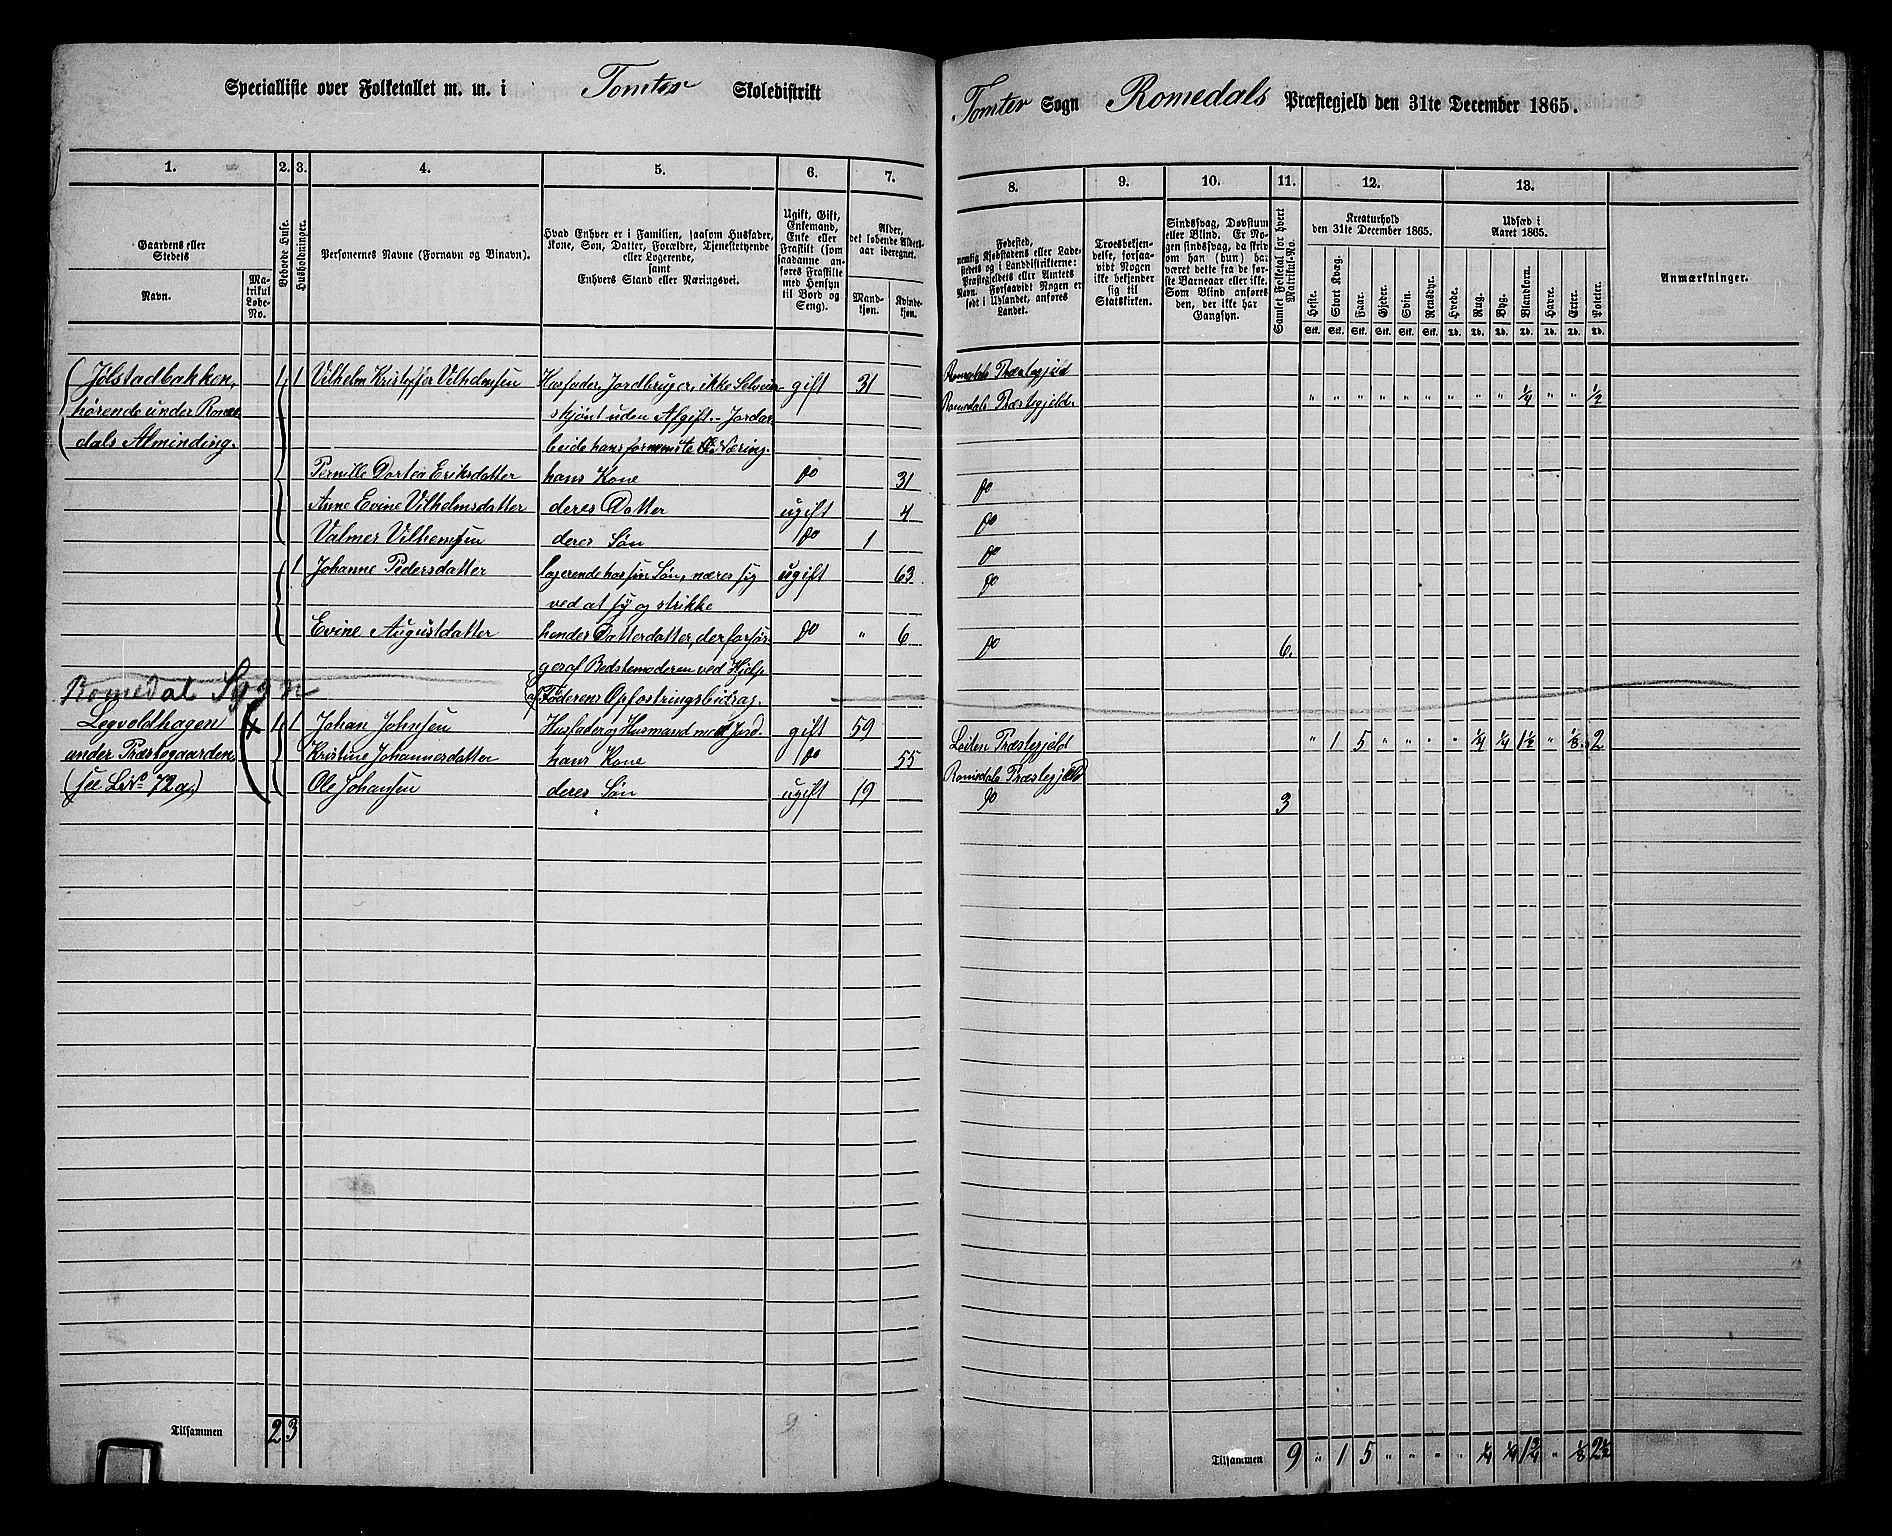 Specialliste over Folketallet m. m. i Tomter Skoledistrikt
Tomter Sogn Romedals Præstegjeld den 31te December 1865.
1. 2. 3. 4. 5. 6. 7.
8. 9. 10. 11. 12. 13.
Gaardens eller
Stedets
Navn.
Matrikul
Løbe-
No.
Beboede Huse.
Husholdninger.
Personernes Navne (Fornavn og Binavn).
Hvad Enhver er i Familien, saasom Husfader,
Kone, Søn, Datter, Forældre, Tjenestetyende
eller Logerende,
samt
Enhvers Stand eller Næringsvei.
Ugift, Gift,
Enkemand,
Enke eller
Fraskilt (som
saadanne an-
føres Fraskilte
med Hensyn
til Bord og
Seng).
Alder,
det løbende Alders-
aar iberegnet.
Mand-
kjøn.
Kvinde-
kjøn.
Fødested,
nemlig Kjøbstadens eller Lade-
stedets og i Landdistrikterne:
Præstegjeldets eller Amtets
Navn. Forsaavidt Nogen er
født i Udlandet, anføres
Landet.
Troesbekjen-
delse, forsaa-
vidt Nogen
ikke bekjender
sig til
Statskirken.
Sindssvag, Døvstum
eller Blind. Er No-
gen sindssvag, da skriv
om han (hun) har
været dette fra de før-
ste Barneaar eller ikke.
Som Blind anføres
den, der ikke har
Gangsyn.
Samlet Folketal for hvert
Matrikul-No.
Kreaturhold
den 31te December 1865.
Heste. Stort Kvæg. Faar. Gjeder. Svin. Rensdyr.
Stk. Stk. Stk. Stk. Stk. Stk.
Udsæd i
Aaret 1865.
Hvede. Rug. Byg. Blandkorn. Havre. Erter. Poteter.
Td. Td. Td. Td. Td. Td. Td.
Anmærkninger.
Jølstadbakken, 1 1 Vilhelm Kristoffer Vilhelmsen Husfader, Jordbruger, ikke Selveier gift 31 Romedals Præstegjeld
hørende under Rome- skjønt uden Afgift. - Jordar- Romedals Præstegjeld. " " " " " " " " " 1/4 " " 1/2
dals Alminding. beide hans fornemste Næring.
Pernille Dortea Eriksdatter hans Kone do 31 do
Anne Evine Vilhelmsdatter deres Datter ugift 4 do
Valmer Vilhemsen deres Søn do 1 do
1 Johanne Pedersdatter logerende hos sin Søn, næres sig ugift 63 do
ved at sy og strikke
Evine Augustdatter hendes Datterdatter, der forsør- do " 6 do 6.
ges af Bedstemoderen ved Hjelp
af Faderens Opfostringsbidrag.
Romedal Sogn
Legvoldhagen + 1 1 Johan Johnsen Husfader og Husmand med Jord. gift 59 Løiten Præstegjeld " 1 5 " " " " 1/4 1/4 1 1/2 " 1/8 2
under Præstegaarden Kristine Johannesdatter hans Kone do 55 Romedals Præstegjeld
(see LNo 72a.) Ole Johansen deres Søn ugift 19 do 3
Tilsammen 2 3 9
Tilsammen 9 " 1 5 " " " " 1/4 1/4 1 3/4 " 1/8 2 1/2